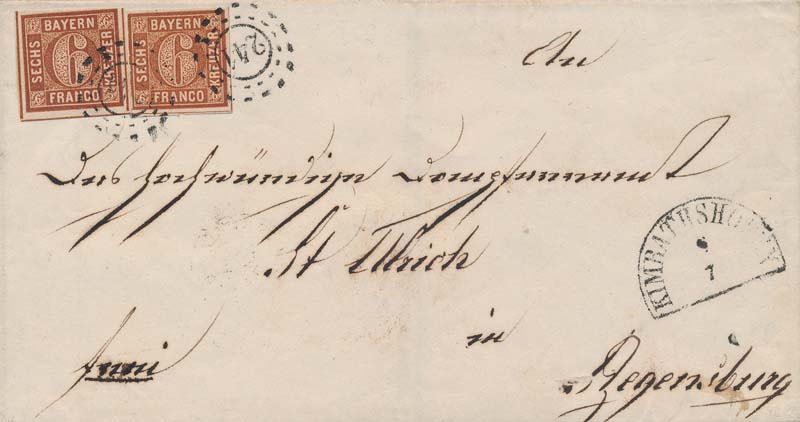 BAYERN
SECHS 6 KREUZER
FRANCO
BAYERN
SECHS 6 KREUZER
FRANCO
241
An
Das hochwürdige Dompfarramt
St Ulrich
in
Regensburg
KIMRATHSHOFEN
7